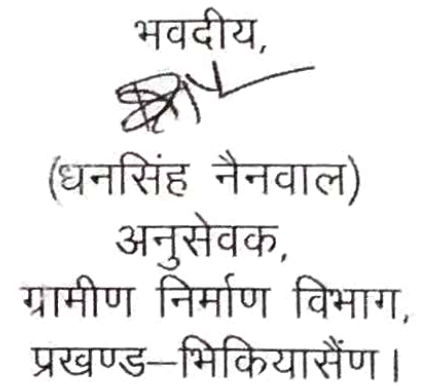 भवदीय,
(धनसिंह नैनवाल)
अनुसेवक,
ग्रामीण निर्माण विभाग,
प्रखण्ड–भिकियासैंण।